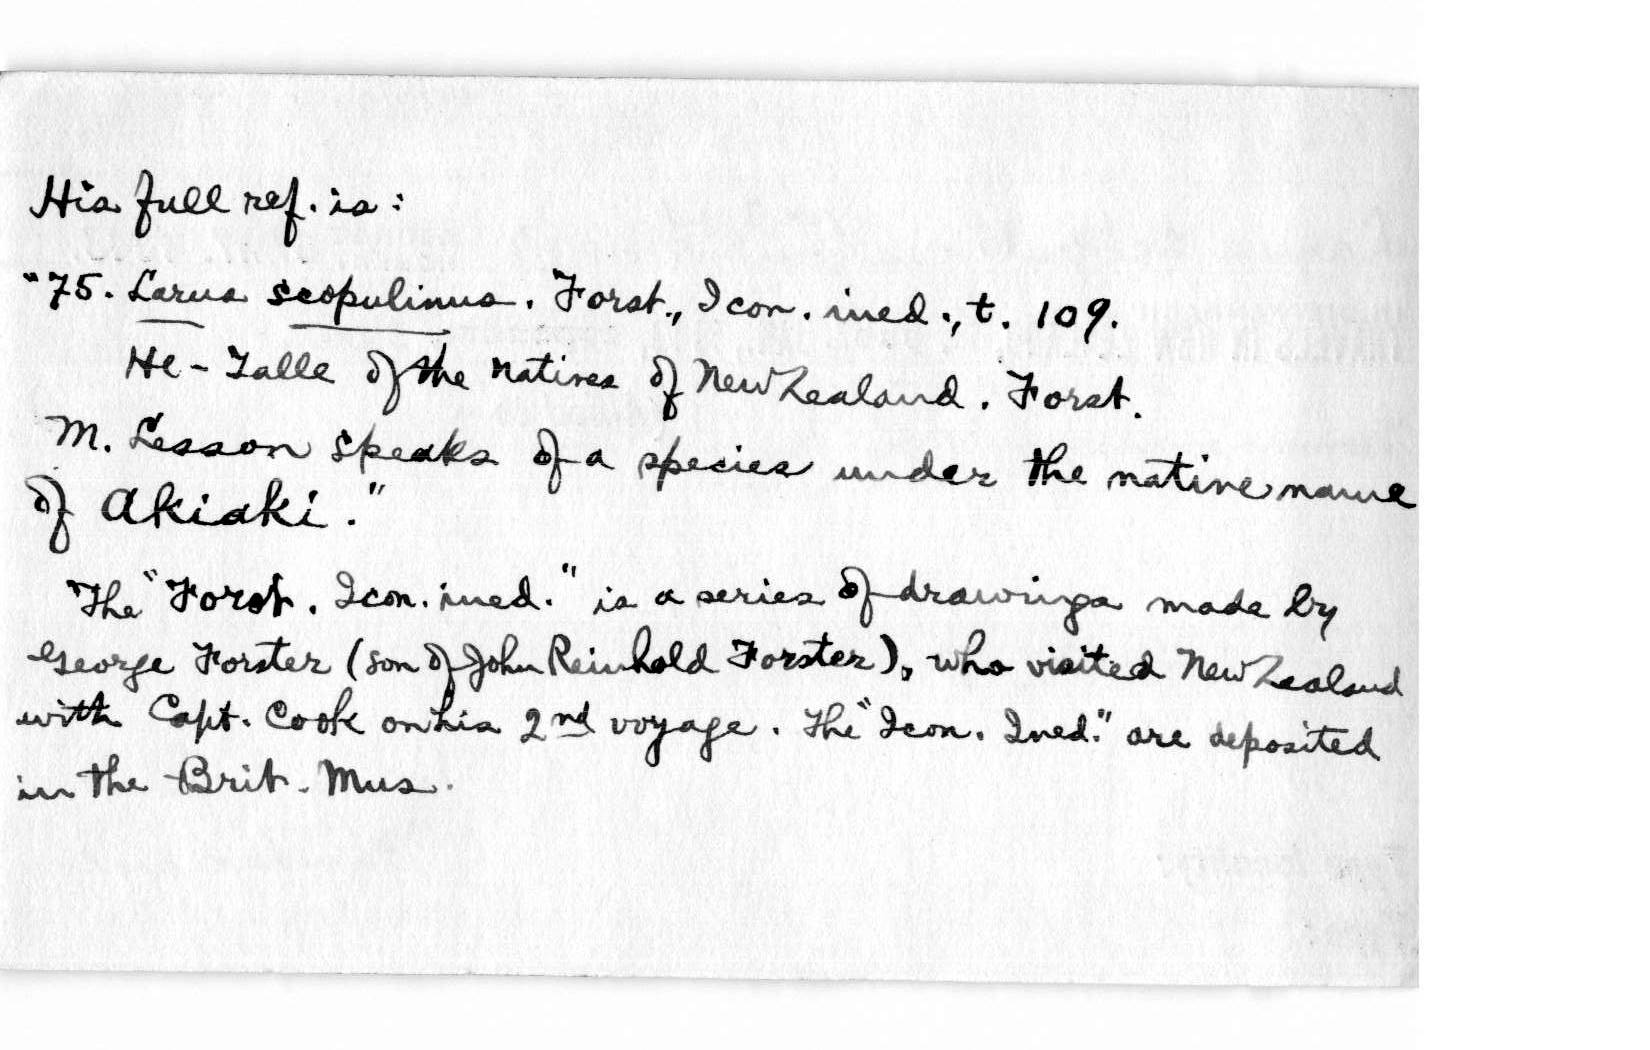 His full ref. is:
"75. Larus scopulinus. Forst., Icon. ined., t. 109.
He-Talle of the natives of New Zealand. Forst.
M. Lesson speaks of a species under the native name
of Akiaki."
The "Forst. Icon. ined." is a series of drawings made by
George Forster (son of John Reinhold Forster), who visited New Zealand
with Capt. Cook on his 2nd voyage. The "Icon. Ined." are deposited
in the Brit. Mus.